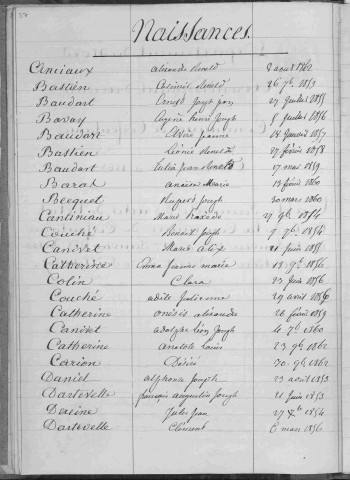 Naissances.
Cuniaux 8 aout 1862
Bastien 26 7bre 1853
Baudart Joseph 27 Juillet 1855
Bavay Eugène henri Joseph 8 Juillet 1856
Baudart Jeanne 18 Janvier 1857
Bastien Léonie 27 février 1858
Baudart Julia Jean 17 mai 1859
Barat Marie 13 février 1860
Becquet Rupert Joseph 30 mars 1860
Cantiniau Marie 27 9bre 1854
Couché Benoit Joseph 9 7bre 1854
Canivet Marie alix 21 Juin 1855
Catherine Emma Jeanne marie 18 9bre 1856
Colin Clara 23 Juin 1856
Couché adèle Julienne 29 avril 1856
Catherine onésis alexandre 26 février 1859
Canivet adolphe léon Joseph 4 7bre 1860
Catherine anatole Louis 23 9bre 1862
Carion Désiré 30 9bre 1862
Daniel alphonse Joseph 23 avril 1853
Dartevelle françois augustin Joseph 21 Juin 1853
Dereine Jules Jean 27 Xbre 1854
Dartevelle Clément 6 mars 1856